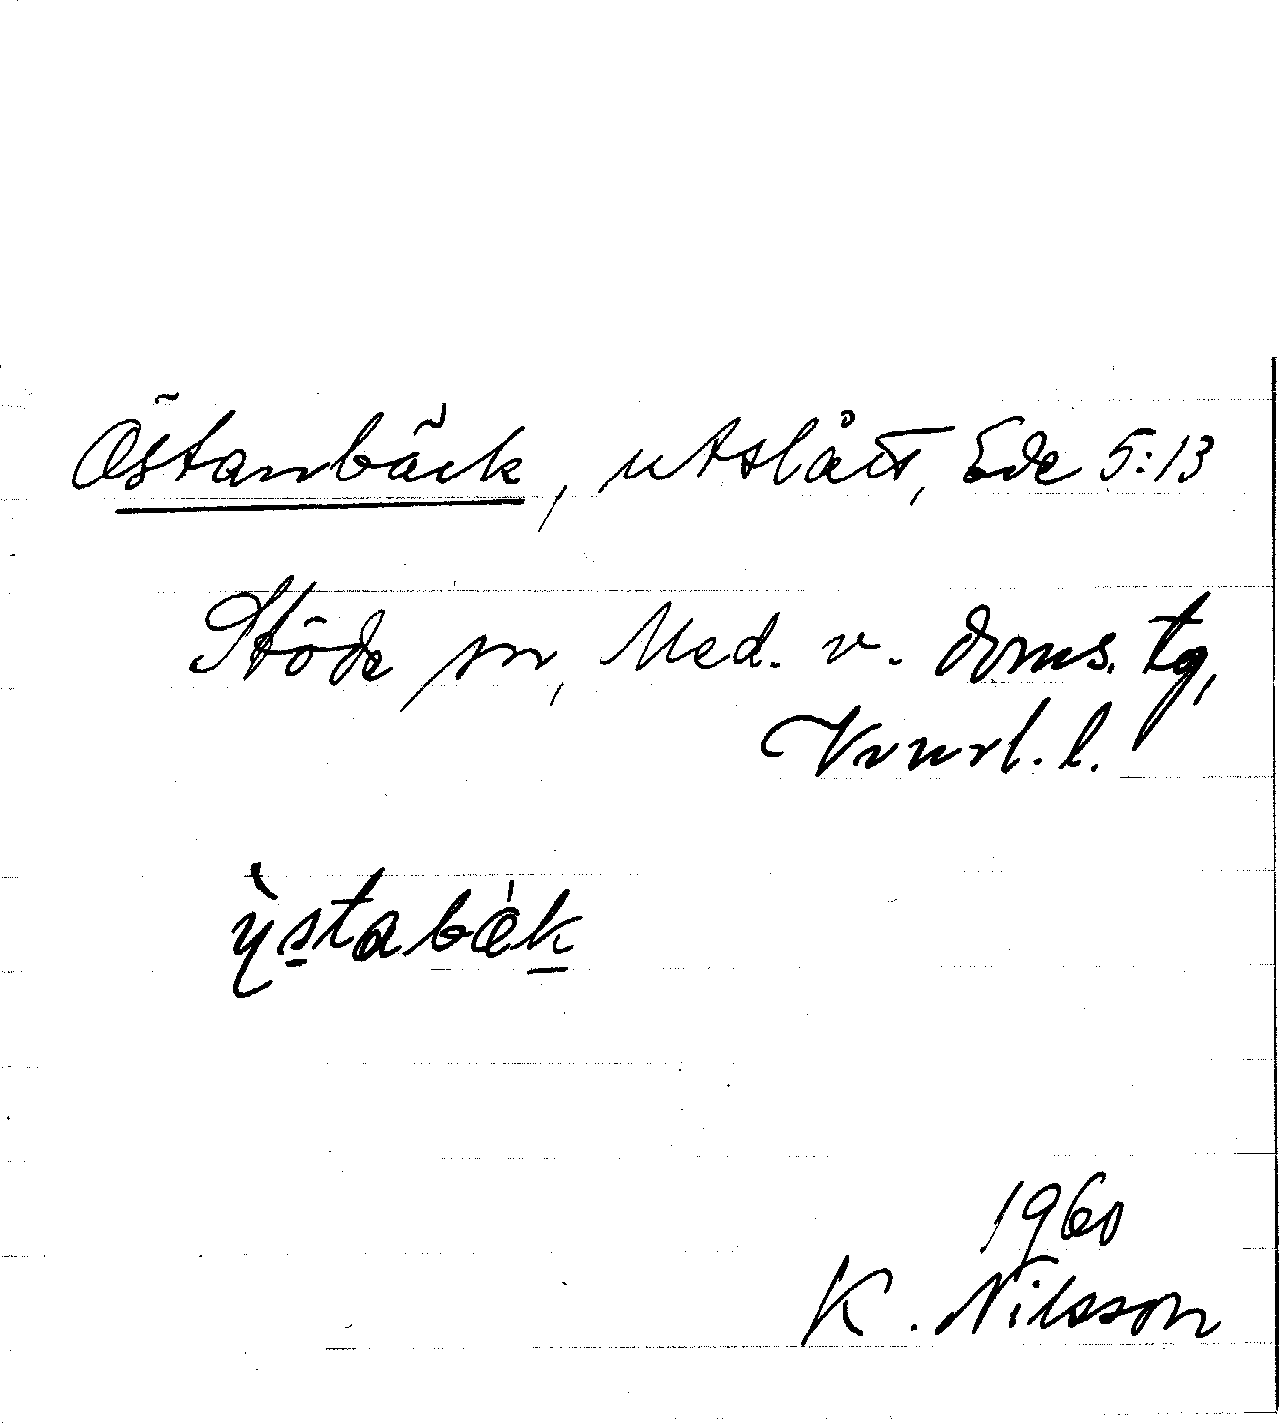 Östanbäck, utslått, Ede 5:13
Stöde sn, Med. v. doms. tg,
Vrnrl. l.
ÿstabèk
1960
K. Nilsson